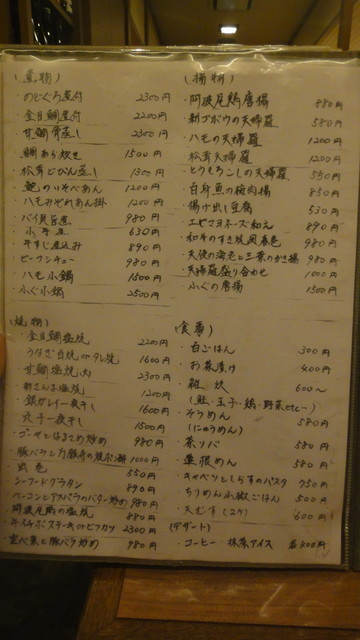 (煮物)
・のどぐろ煮付 2300円
・金目鯛煮付 2200円
・甘鯛骨蒸し 2300円
鯛あら炊き 1500円
・松茸どびん蒸し 1300円
・鮑のいそべあん 1200円
・ハモみぞれあん掛 1200円
・バイ貝旨煮 980円
・小芋煮 630円
・牛すじ煮込み 890円
・ビーフシチュー 980円
・ハモ小鍋 1500円
・ふぐ小鍋 2500円
(焼物)
・金目鯛塩焼 2200円
・うなぎ白焼orタレ焼 1600円
・甘鯛塩焼 2300円
・新さんま塩焼 1200円
・銀ガレイ一夜干し 1600円
・穴子一夜干し 1500円
・ゴーヤとはるさめ炒め 980円
1000円
・出し巻 550円
・シーフードグラタン 890円
・ベーコンとアスパラのバター炒め 980円
・阿波尾鶏の塩焼 880円
2300円
980円
(揚物)
・阿波尾鶏唐揚 880円
・新ゴボウの天婦羅 580円
・ハモの天婦羅 1200円
・松茸天婦羅 1200円
・とうもろこしの天婦羅 550円
・白身魚の梅肉揚 850円
・揚げ出し豆腐 530円
・エビマヨネーズ和え 890円
・和牛のすき焼風春巻 980円
・天使の海老と三葉のかき揚 980円
・天婦羅盛り合わせ 1000円
・ふぐの唐揚 1500円
(食事)
・白ごはん 300円
・お茶漬け 400円
・雑炊 600〜
(鮭・玉子・鶏・野菜etc〜)
・そうめん 580円
(にゅうめん)
・茶ソバ 580円
・蓮根めん 580円
・キャベツとしらすのパスタ 750円
・ちりめん山椒ごはん 500円
・天むす(2ケ) 600円
(デザート)
・コーヒー 抹茶アイス 各400円